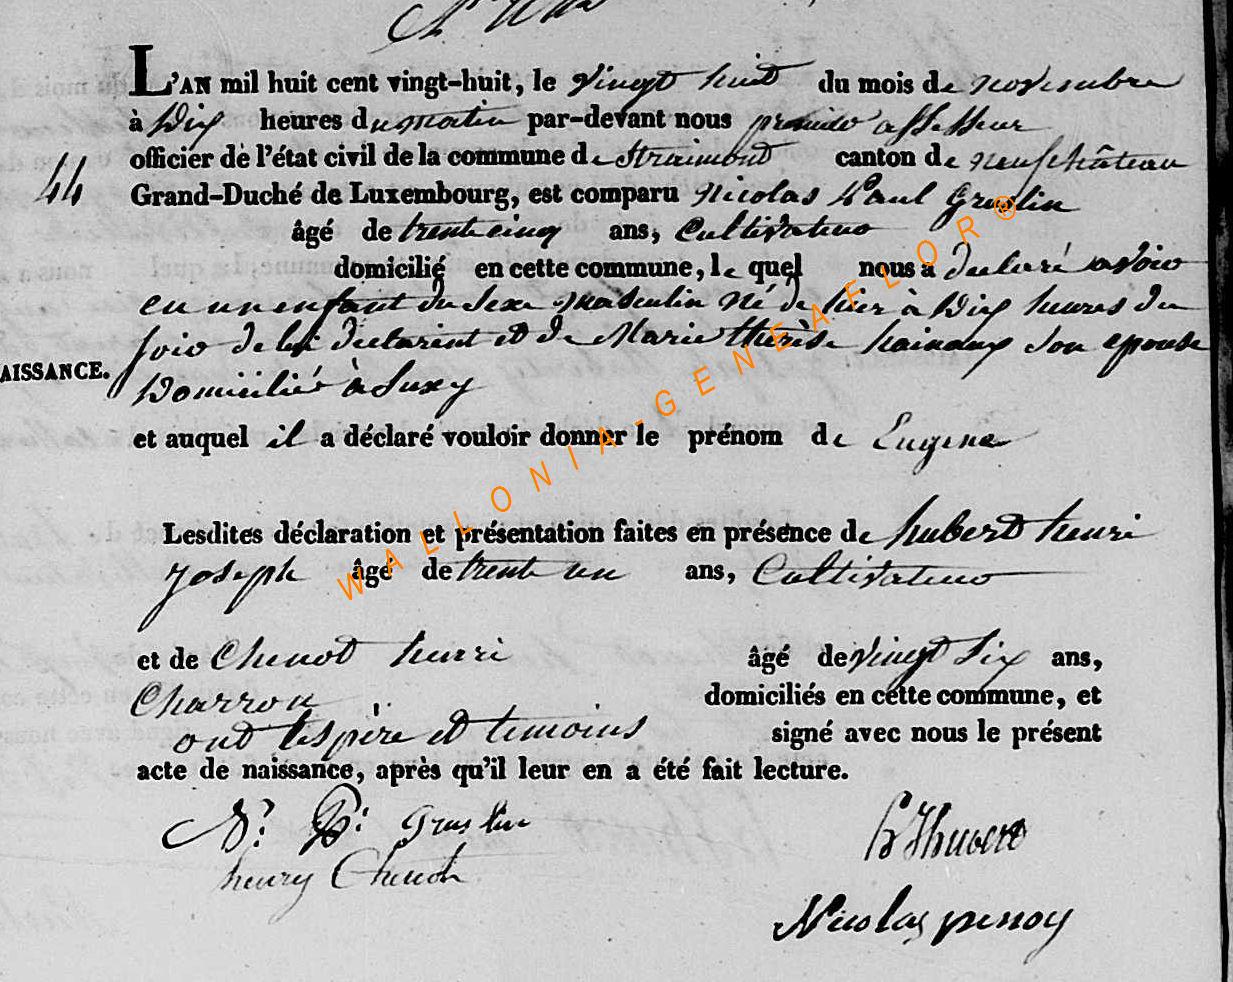 L'AN mil huit cent vingt-huit, le vingt huit du mois de novembre
à Dix heures du matin par-devant nous premier assesseur
officier de l'état civil de la commune de Straimont canton de neufchâteau
44
Grand-Duché de Luxembourg, est comparu Nicolas Paul Gruslin
âgé de trente cinq ans, Cultivateur
domicilié en cette commune, le quel nous a declaré avoir
eu un enfant du sexe masculin né de hier à Dix heures du
soir de lui déclarant et de Marie thérèse hainaux son epouse
AISSANCE.
Domiciliés à Suxy
et auquel il a déclaré vouloir donner le prénom de Eugene
Lesdites déclaration et présentation faites en présence de hubert henri
Joseph âgé de trente un ans, Cultivateur
et de Chenot henri âgé de vingt six ans,
Charron domiciliés en cette commune, et
ont les père et temoins signé avec nous le présent
acte de naissance, après qu'il leur en a été fait lecture.
N. P. Gruslin
h J hubert
henry Chenot
Nicolas pierroy
WALLONIA-GENEAFLOR®